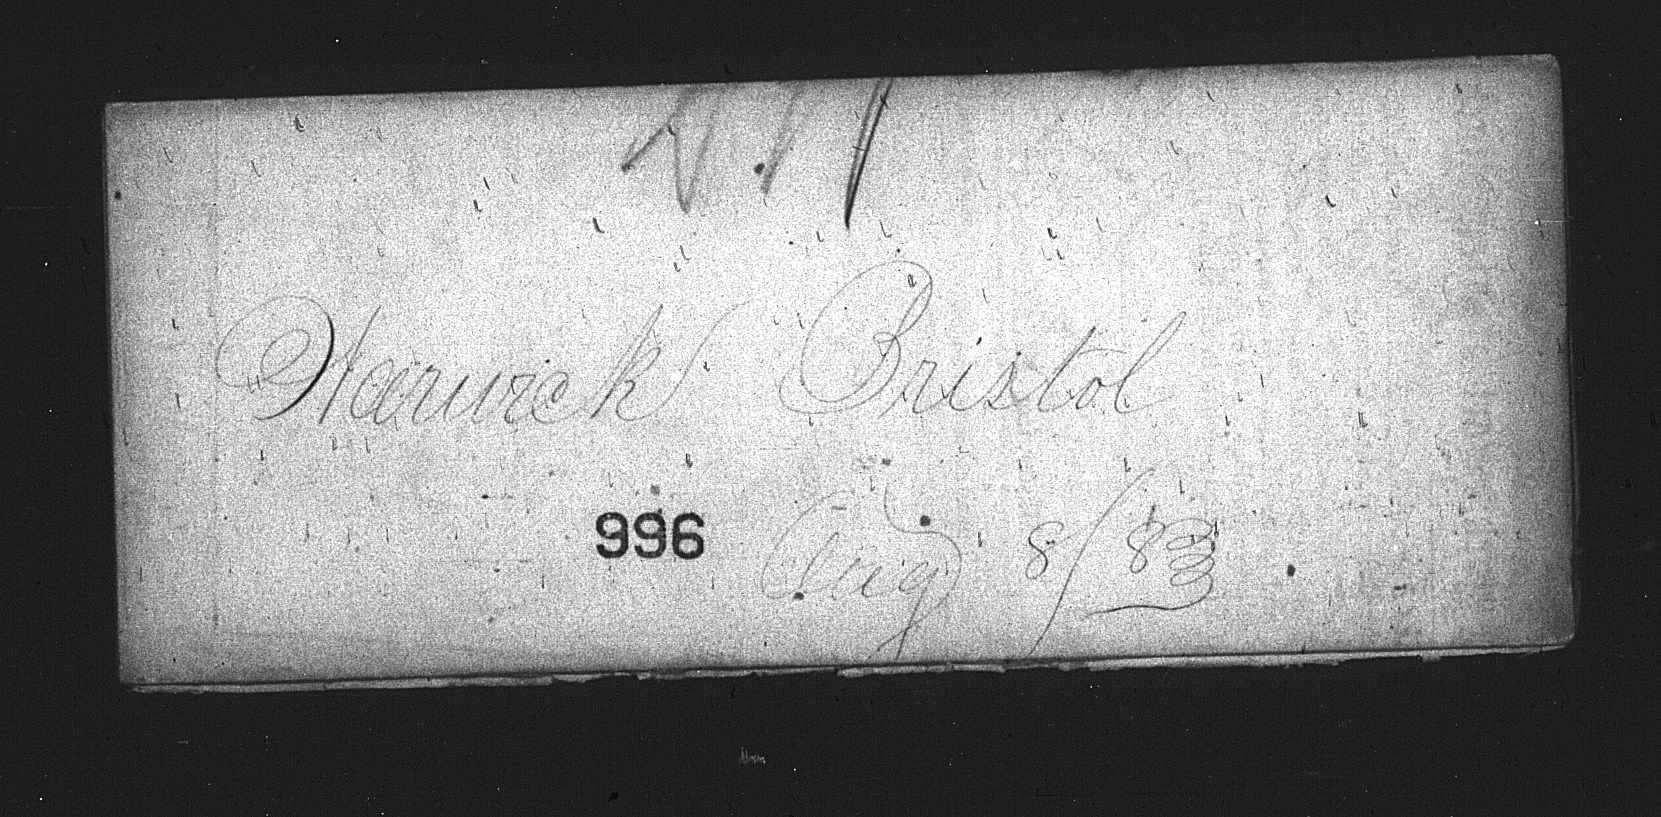 Warwick Bristol
996 Aug 8/83